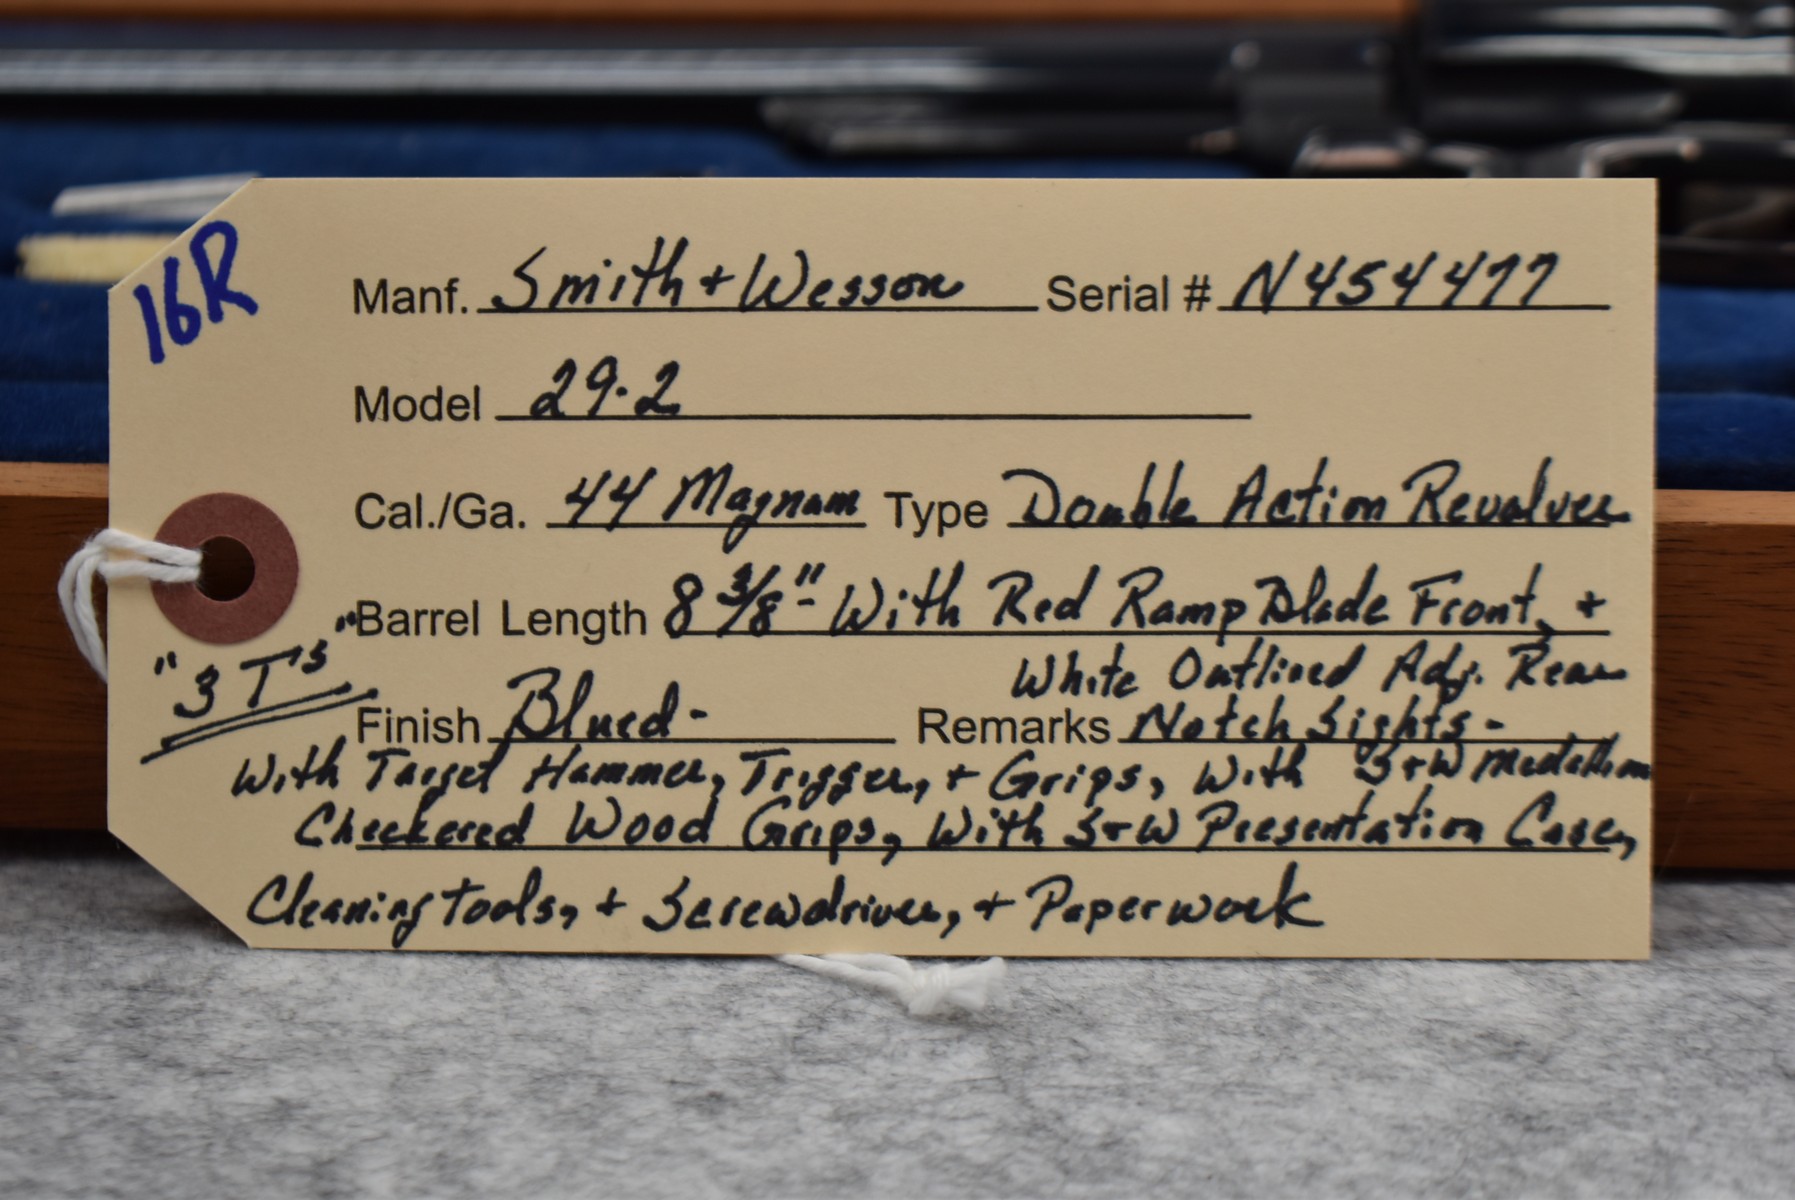 16R
Manf. Smith + Wesson Serial # N454477
Model 29-2
Cal./Ga. 44 Magnum Type Double Action Revolver
Barrel Length 8 3/8" - With Red Ramp Blade Front, +
White Outlined Adj. Rear
"3 T's"
Finish Blued - Remarks Notch Sights -
With Target Hammer, Trigger, + Grips, With S+W Medallion
Checkered Wood Grips, With S+W Presentation Case,
Cleaning Tools, + Screwdriver, + Paperwork